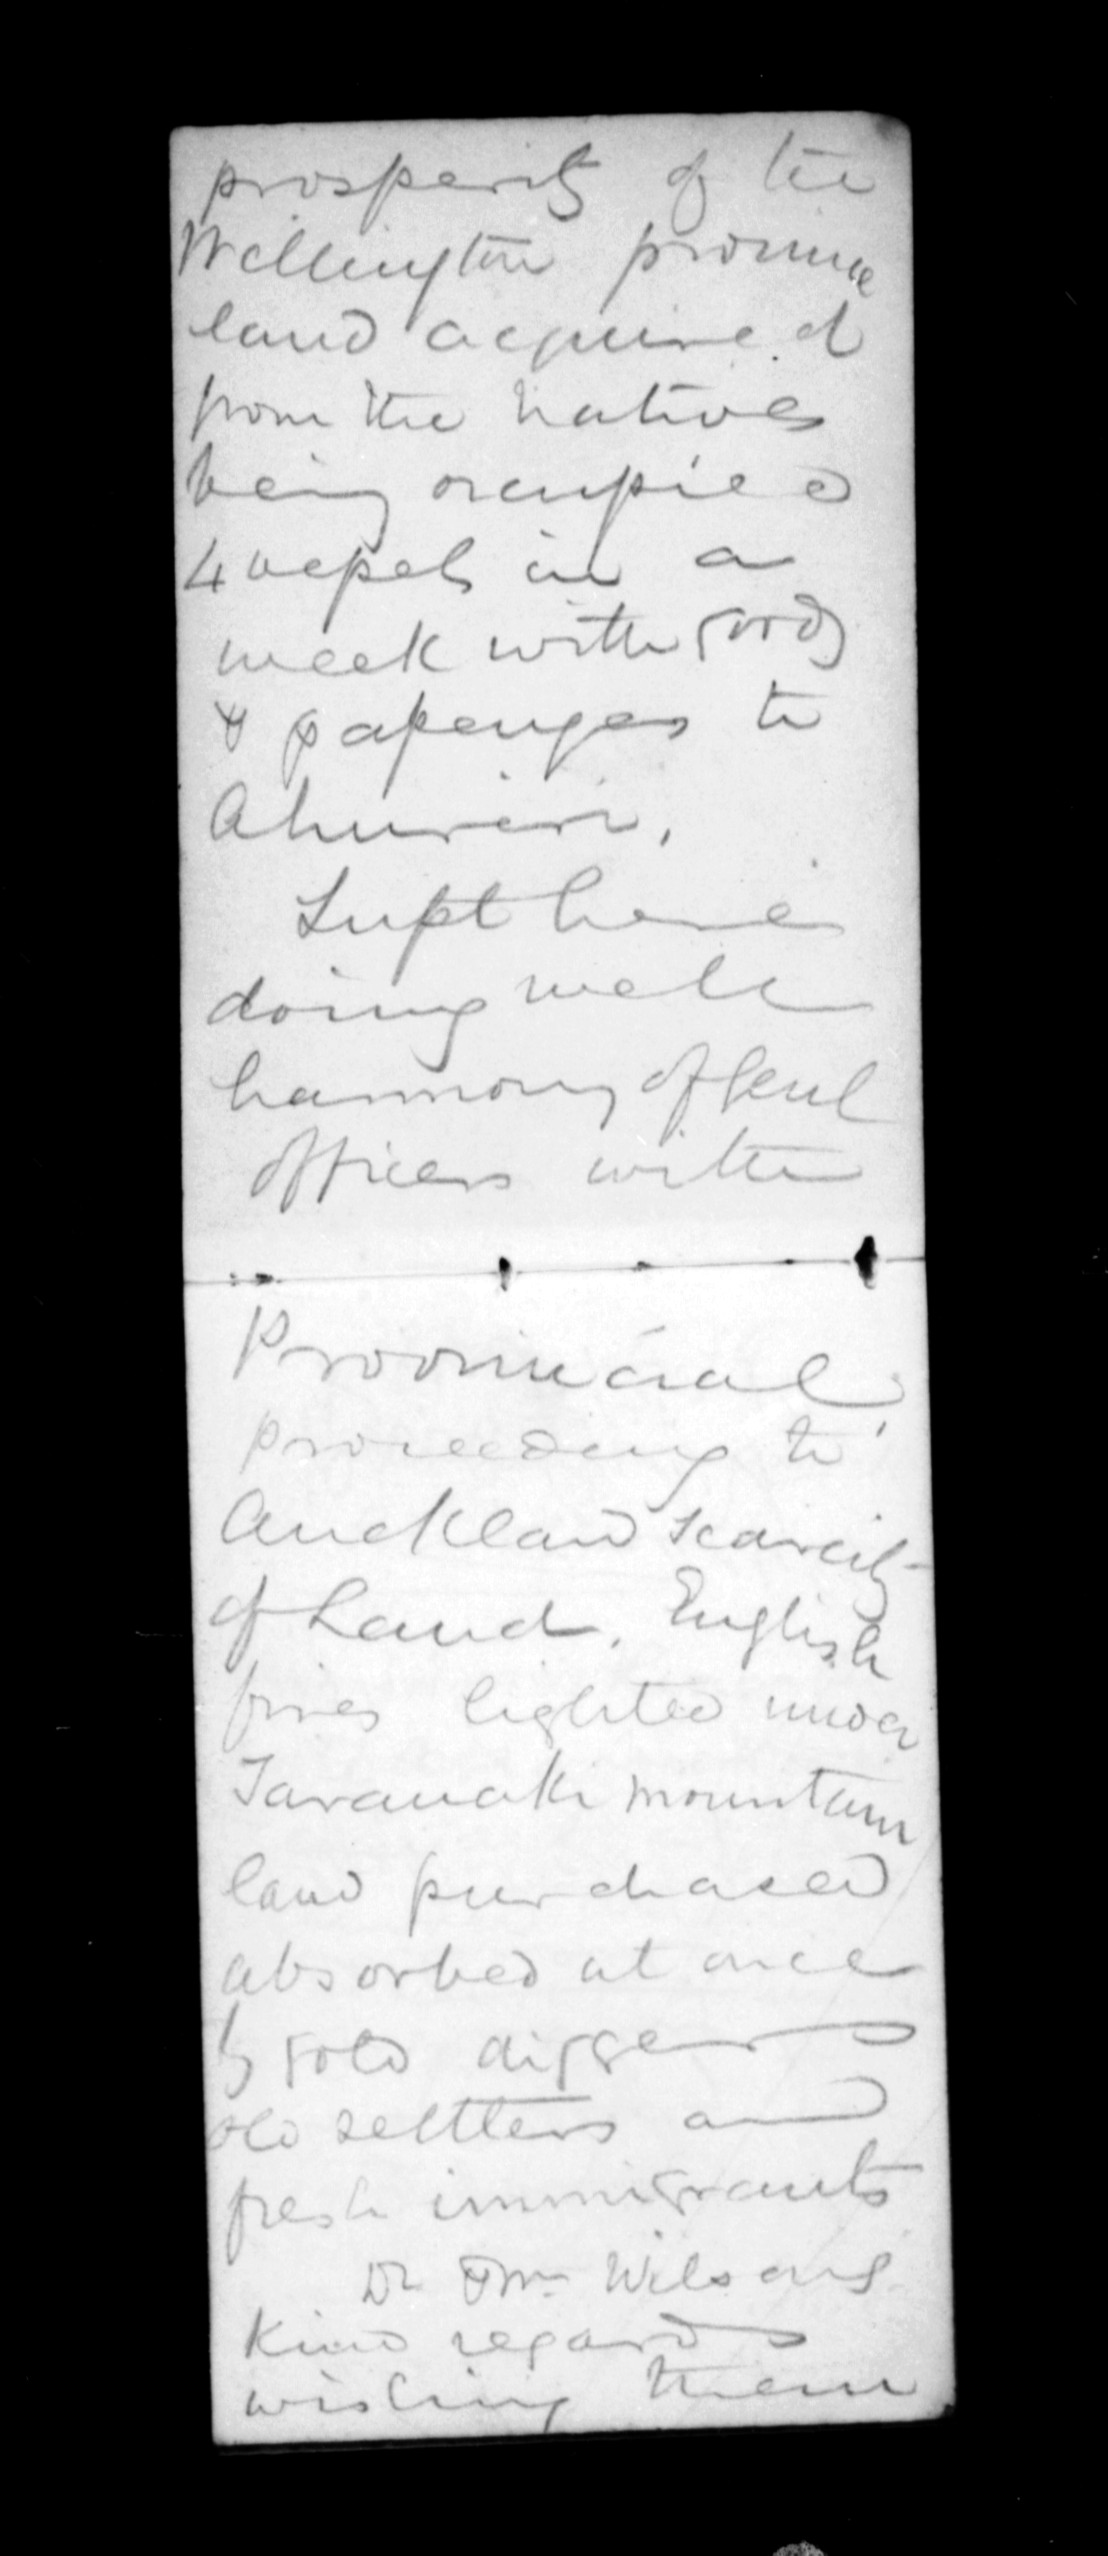 prosperity of the
Wellington province
land acquired
from the natives
being occupied
4 vessels in a
week with goods
& passengers to
Ahuriri.
Supt here
doing well
harmony of Genl
Officers with
Provincial,
proceeding to
Auckland scarcity
of Land. English
fires lighted under
Taranaki mountain
land purchased
absorbed at once
by gold diggers
old settlers and
fresh immigrants
Dr & Mrs Wilsons
kind regards
wishing them